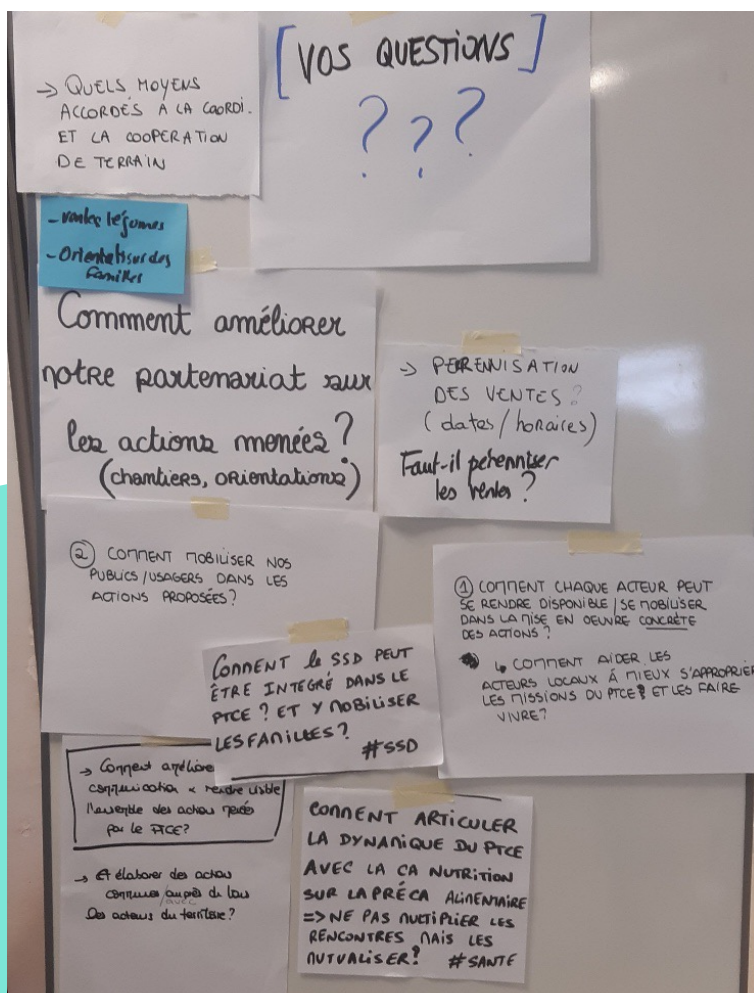 → QUELS MOYENS
ACCORDÉS A LA COORDI.
ET LA COOPERATION
DE TERRAIN
[VOS QUESTIONS]
? ? ?
- ventes légumes
- Orientation des
familles
Comment améliorer
notre partenariat sur
les actions menées?
(chantiers, orientations)
→ PERENNISATION
DES VENTES?
(dates/horaires)
Faut-il pérenniser
les ventes?
② COMMENT MOBILISER NOS
PUBLICS/USAGERS DANS LES
ACTIONS PROPOSÉES?
① COMMENT CHAQUE ACTEUR PEUT
SE RENDRE DISPONIBLE / SE MOBILISER
DANS LA MISE EN OEUVRE CONCRÈTE
DES ACTIONS?
↳ COMMENT AIDER LES
ACTEURS LOCAUX À MIEUX S'APPROPRIER
LES MISSIONS DU PTCE? ET LES FAIRE
VIVRE?
COMMENT le SSD PEUT
ÊTRE INTEGRÉ DANS LE
PTCE? ET Y MOBILISER
LES FAMILLES?
#SSD
→ Comment améliore
communication & rendre visible
l'ensemble des actions menées
par le PTCE?
→ Et élaborer des actions
communes auprès de
avec
des acteurs du territoire?
COMMENT ARTICULER
LA DYNAMIQUE DU PTCE
AVEC LA CA NUTRITION
SUR LA PRÉCA ALIMENTAIRE
=> NE PAS MULTIPLIER LES
RENCONTRES MAIS LES
MUTUALISER? #SANTE